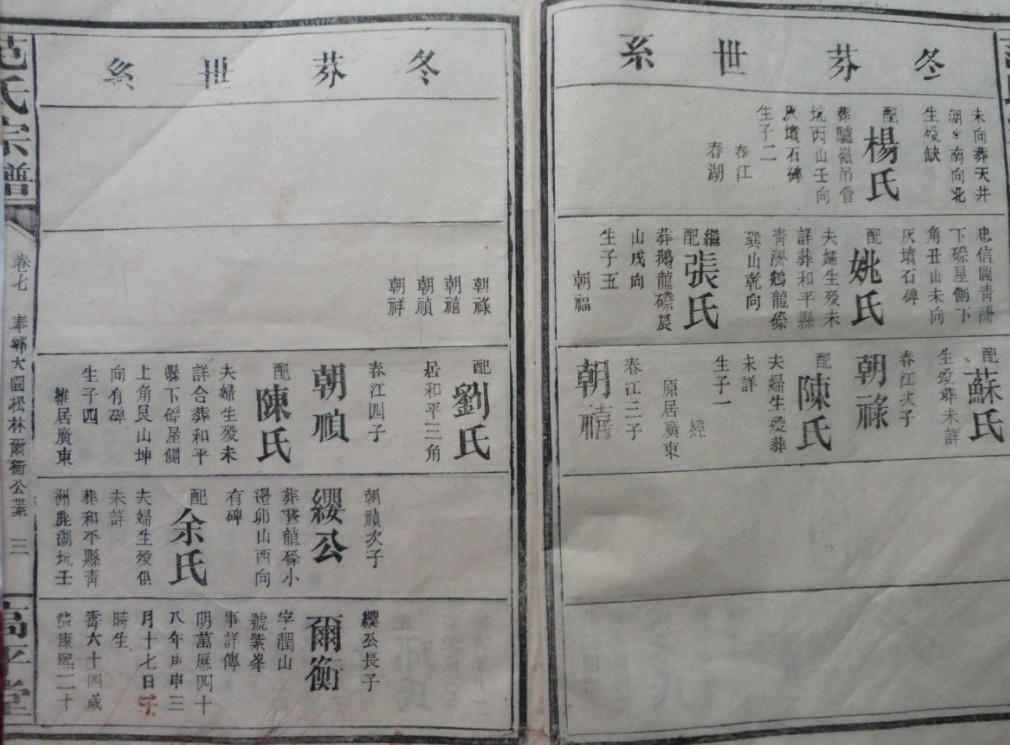 冬芬世系
未向葬天井
湖坐南向北
生殁缺
配
楊氏
坑丙山壬向
灰墳石碑
生子二
春江
春湖
忠信圓青洲
下磜屋側下
角丑山未向
灰墳石碑
配
姚氏
夫婦生殁未
詳葬和平縣
青洲鵝龍磜
巽山乾向
繼配
張氏
葬鵝龍磜辰
山戌向
生子五
朝福
配
蘇氏
生殁葬未詳
春江次子
朝祿
配
陳氏
夫婦生殁葬
未詳
生子一
經
原居廣東
春江三子
朝禧
冬芬世系
朝祿
朝禧
朝禎
朝祥
配
劉氏
居和平三角
春江四子
朝禎
配
陳氏
夫婦生殁未
詳合葬和平
縣下磜屋側
上角艮山坤
向有碑
生子四
雒居廣東
朝禎次子
纓公
小
邊卯山酉向
有碑
配
余氏
夫婦生殁俱
未詳
葬和平縣青
洲鹿湖坑壬
纓公長子
爾衡
字潤山
號紫峯
事詳傳
明萬歷四十
八年庚申三
月十七日子
時生
壽六十四歲
康熙二十
范氏宗譜
卷七
奉鄉大園松林爾衡公業
三
高平堂